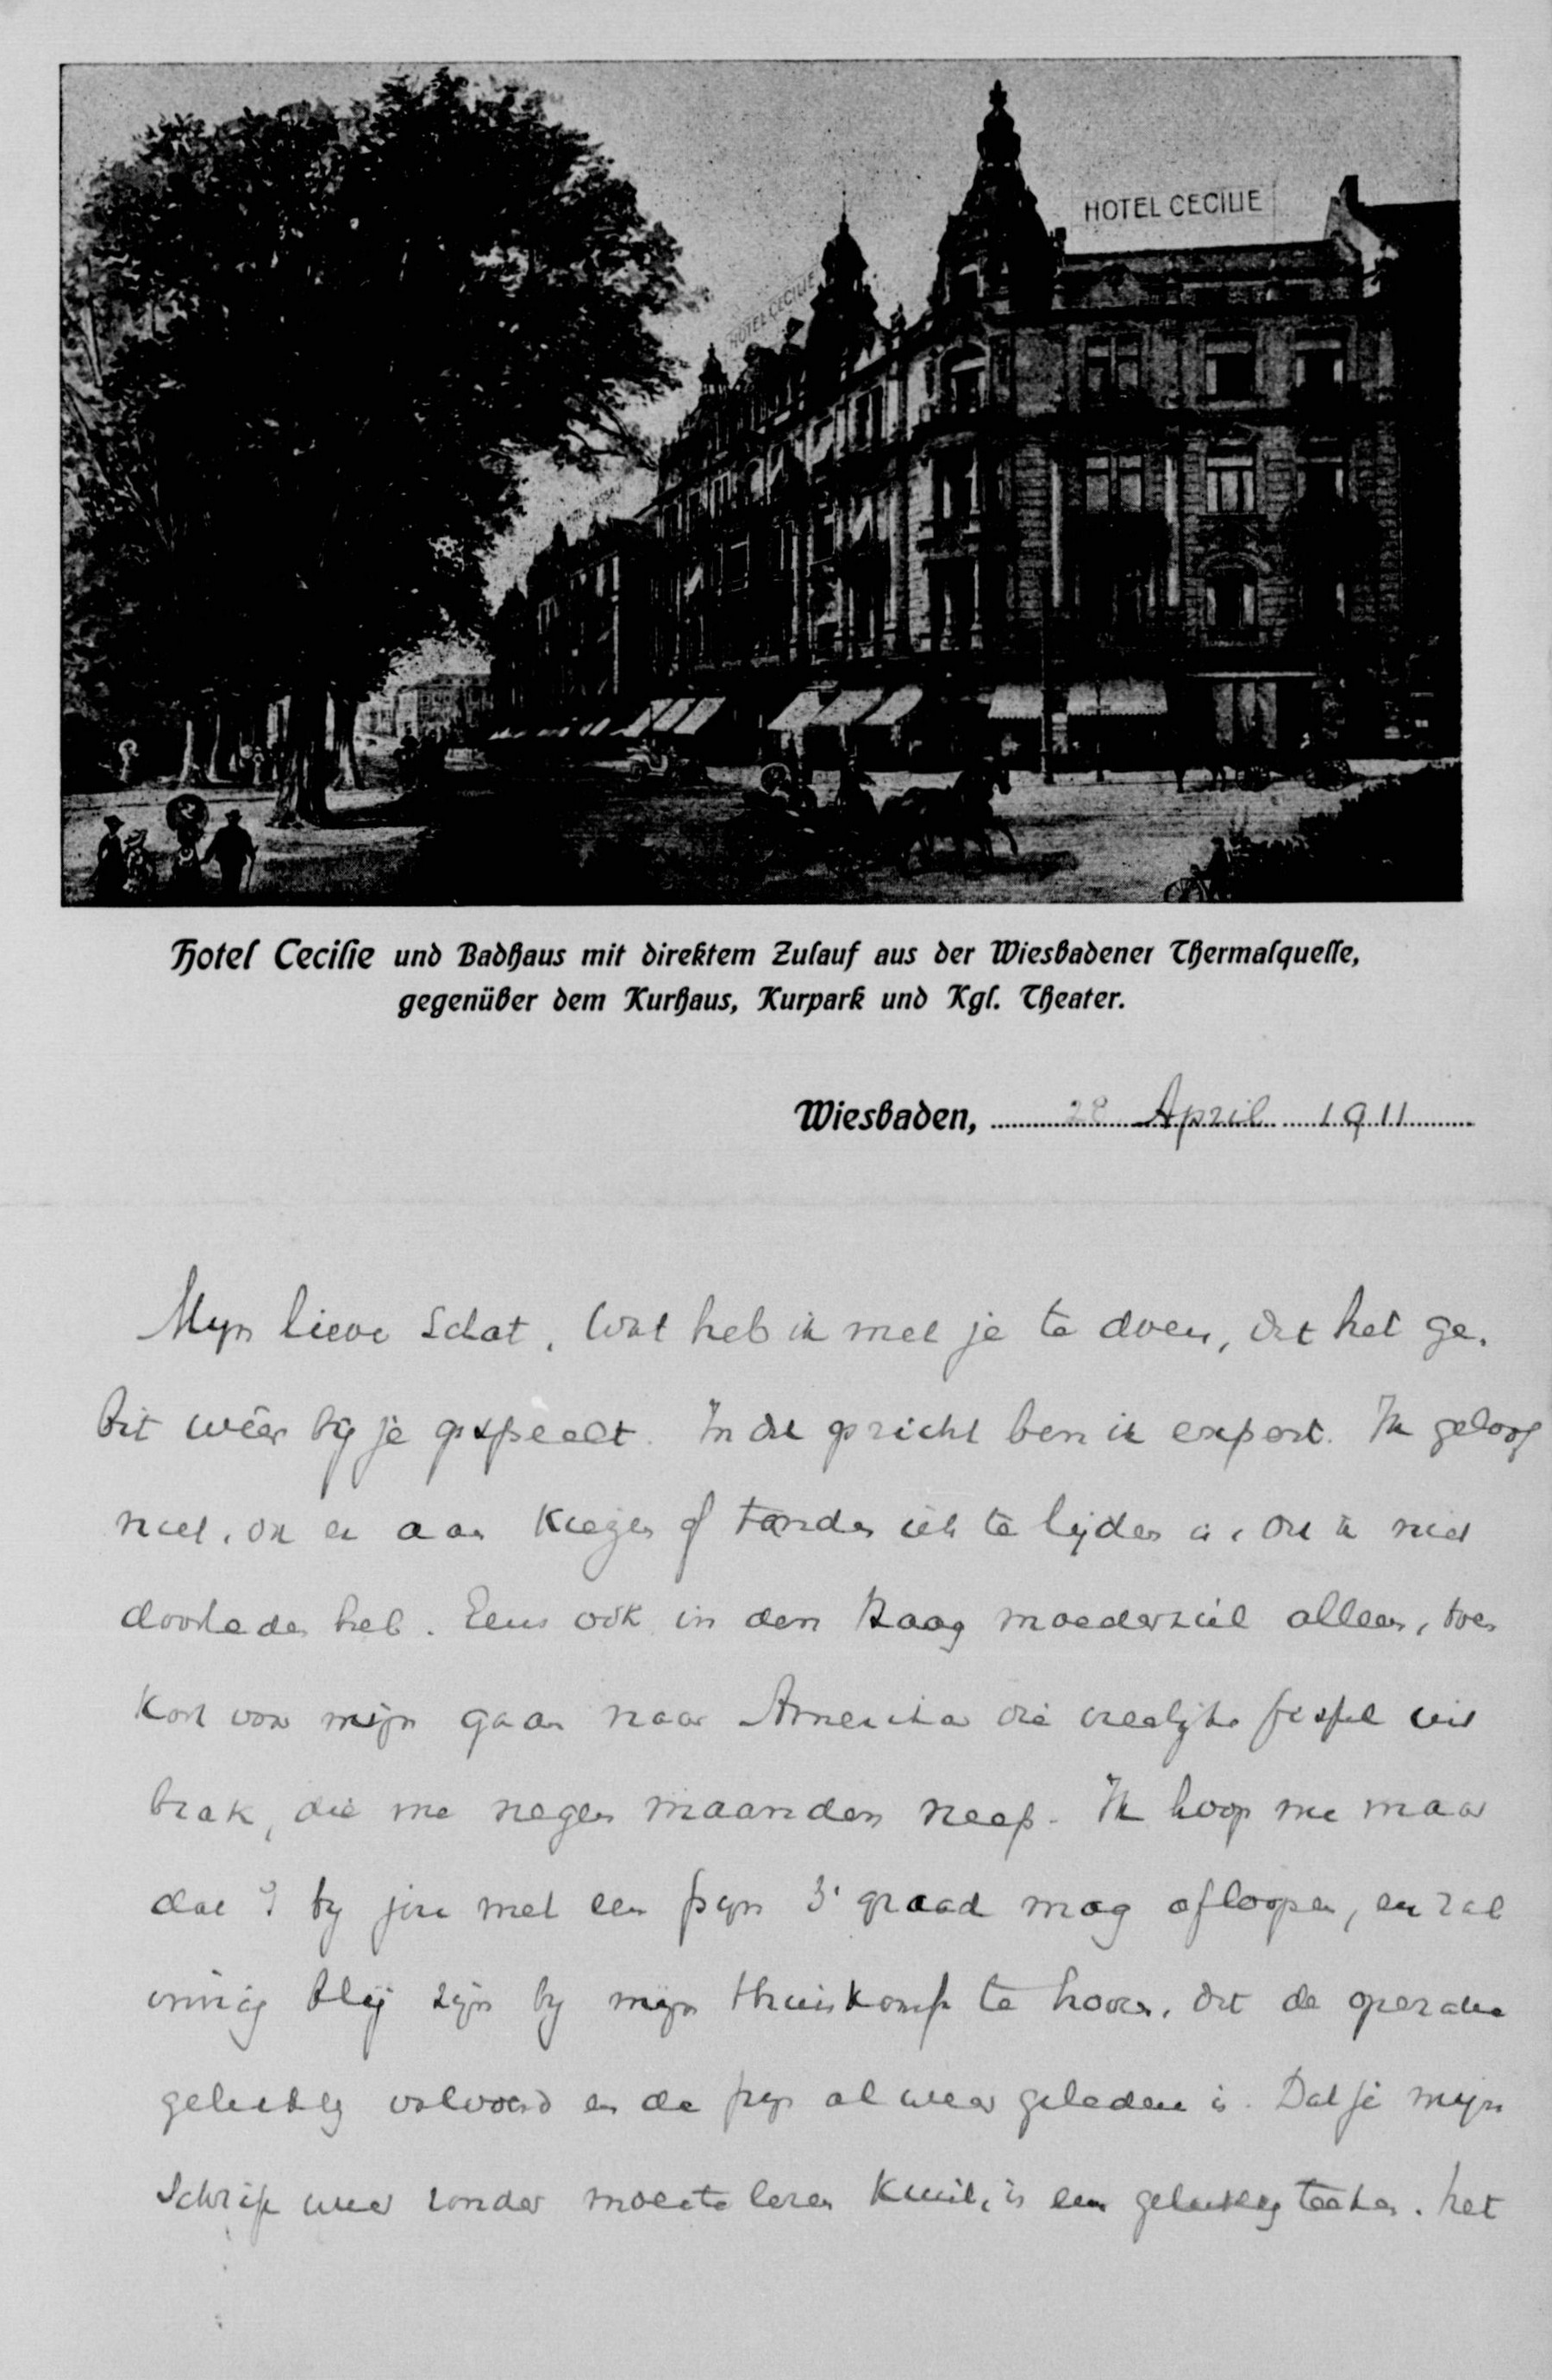 HOTEL CECILIE
HOTEL CECILIE
Hotel Cecilie und Badhaus mit direktem Zulauf aus der Wiesbadener Thermalquelle,
gegenüber dem Kurhaus, Kurpark und Kgl. Theater.
Wiesbaden, 28 April 1911
Mijn lieve schat, Wat heb ik met je te doen, dat het ge-
bit wêer bij je opspeelt. In dit opzicht ben ik expert. Ik geloof
niet, dat er aan kiezen of tanden iets te lijden is, dat ik niet
doorleden heb. Eens ook in den Haag moederziel alleen, toen
kort voor mijn gaan naar Amerika die vreeslijke fistel uit
brak, die me negen maanden neep. Ik hoop nu maar
dat 't bij jou met een pijn 3e graad mag afloopen, en zal
innig blij zijn bij mijn thuiskomst te hooren, dat de operatie
gelukkig volvoerd en de pijn al weer geleden is. Dat je mijn
schrift weer zonder moeite lezen kunt, is een gelukkig teeken. het